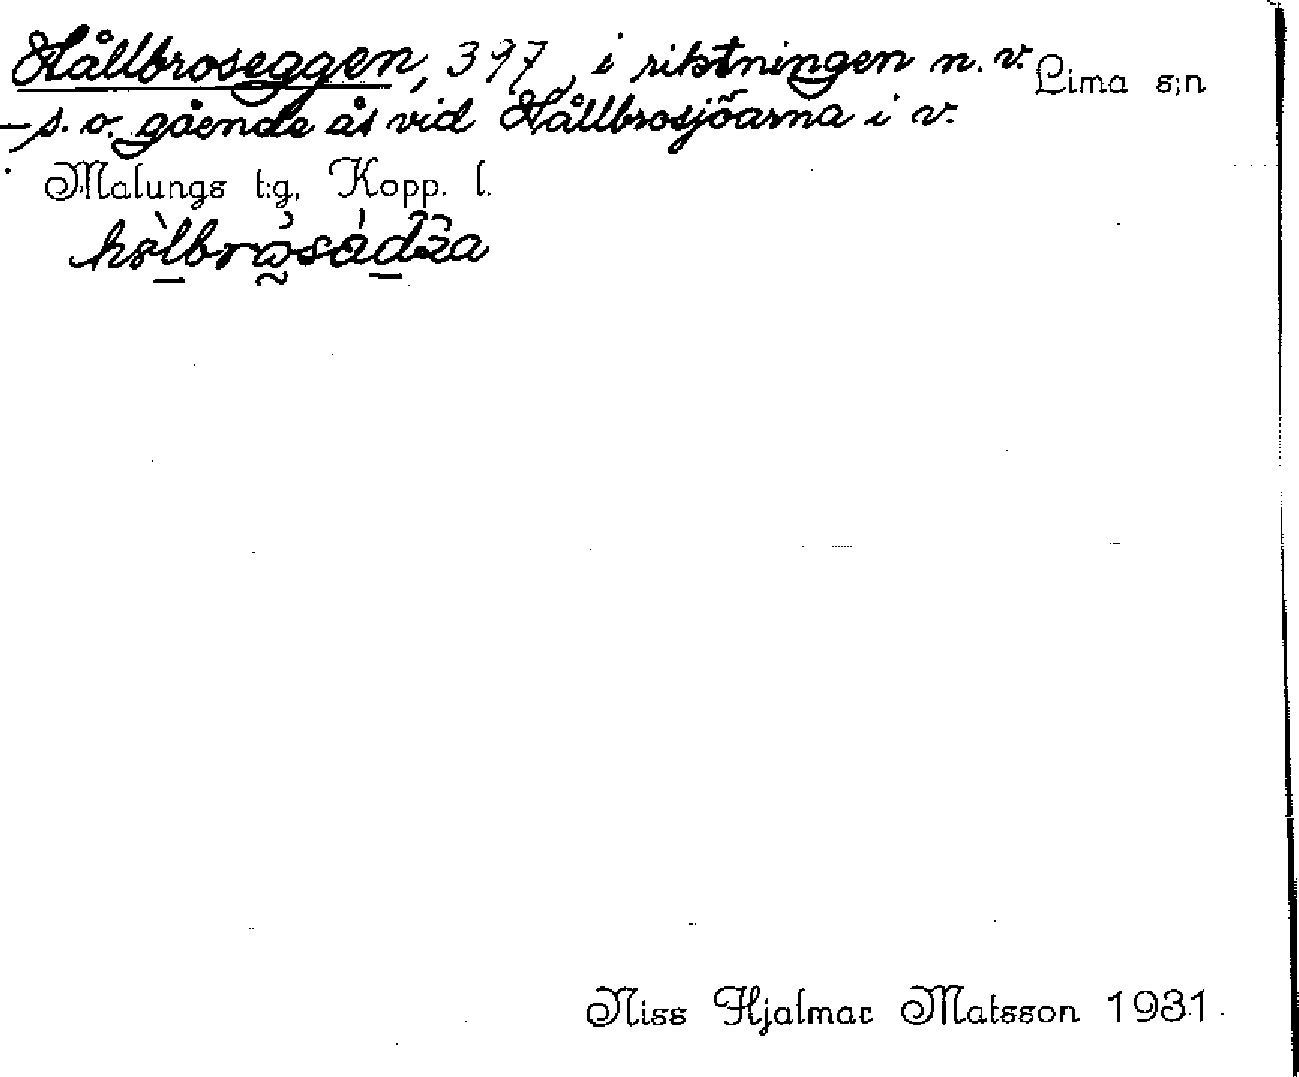 Hållbroseggen, 397, i riktningen n.v. Lima s;n
– s.o. gående ås vid Hållbrosjöarna i v.
Malungs t:g, Kopp. l.
Niss Hjalmar Matsson 1931.